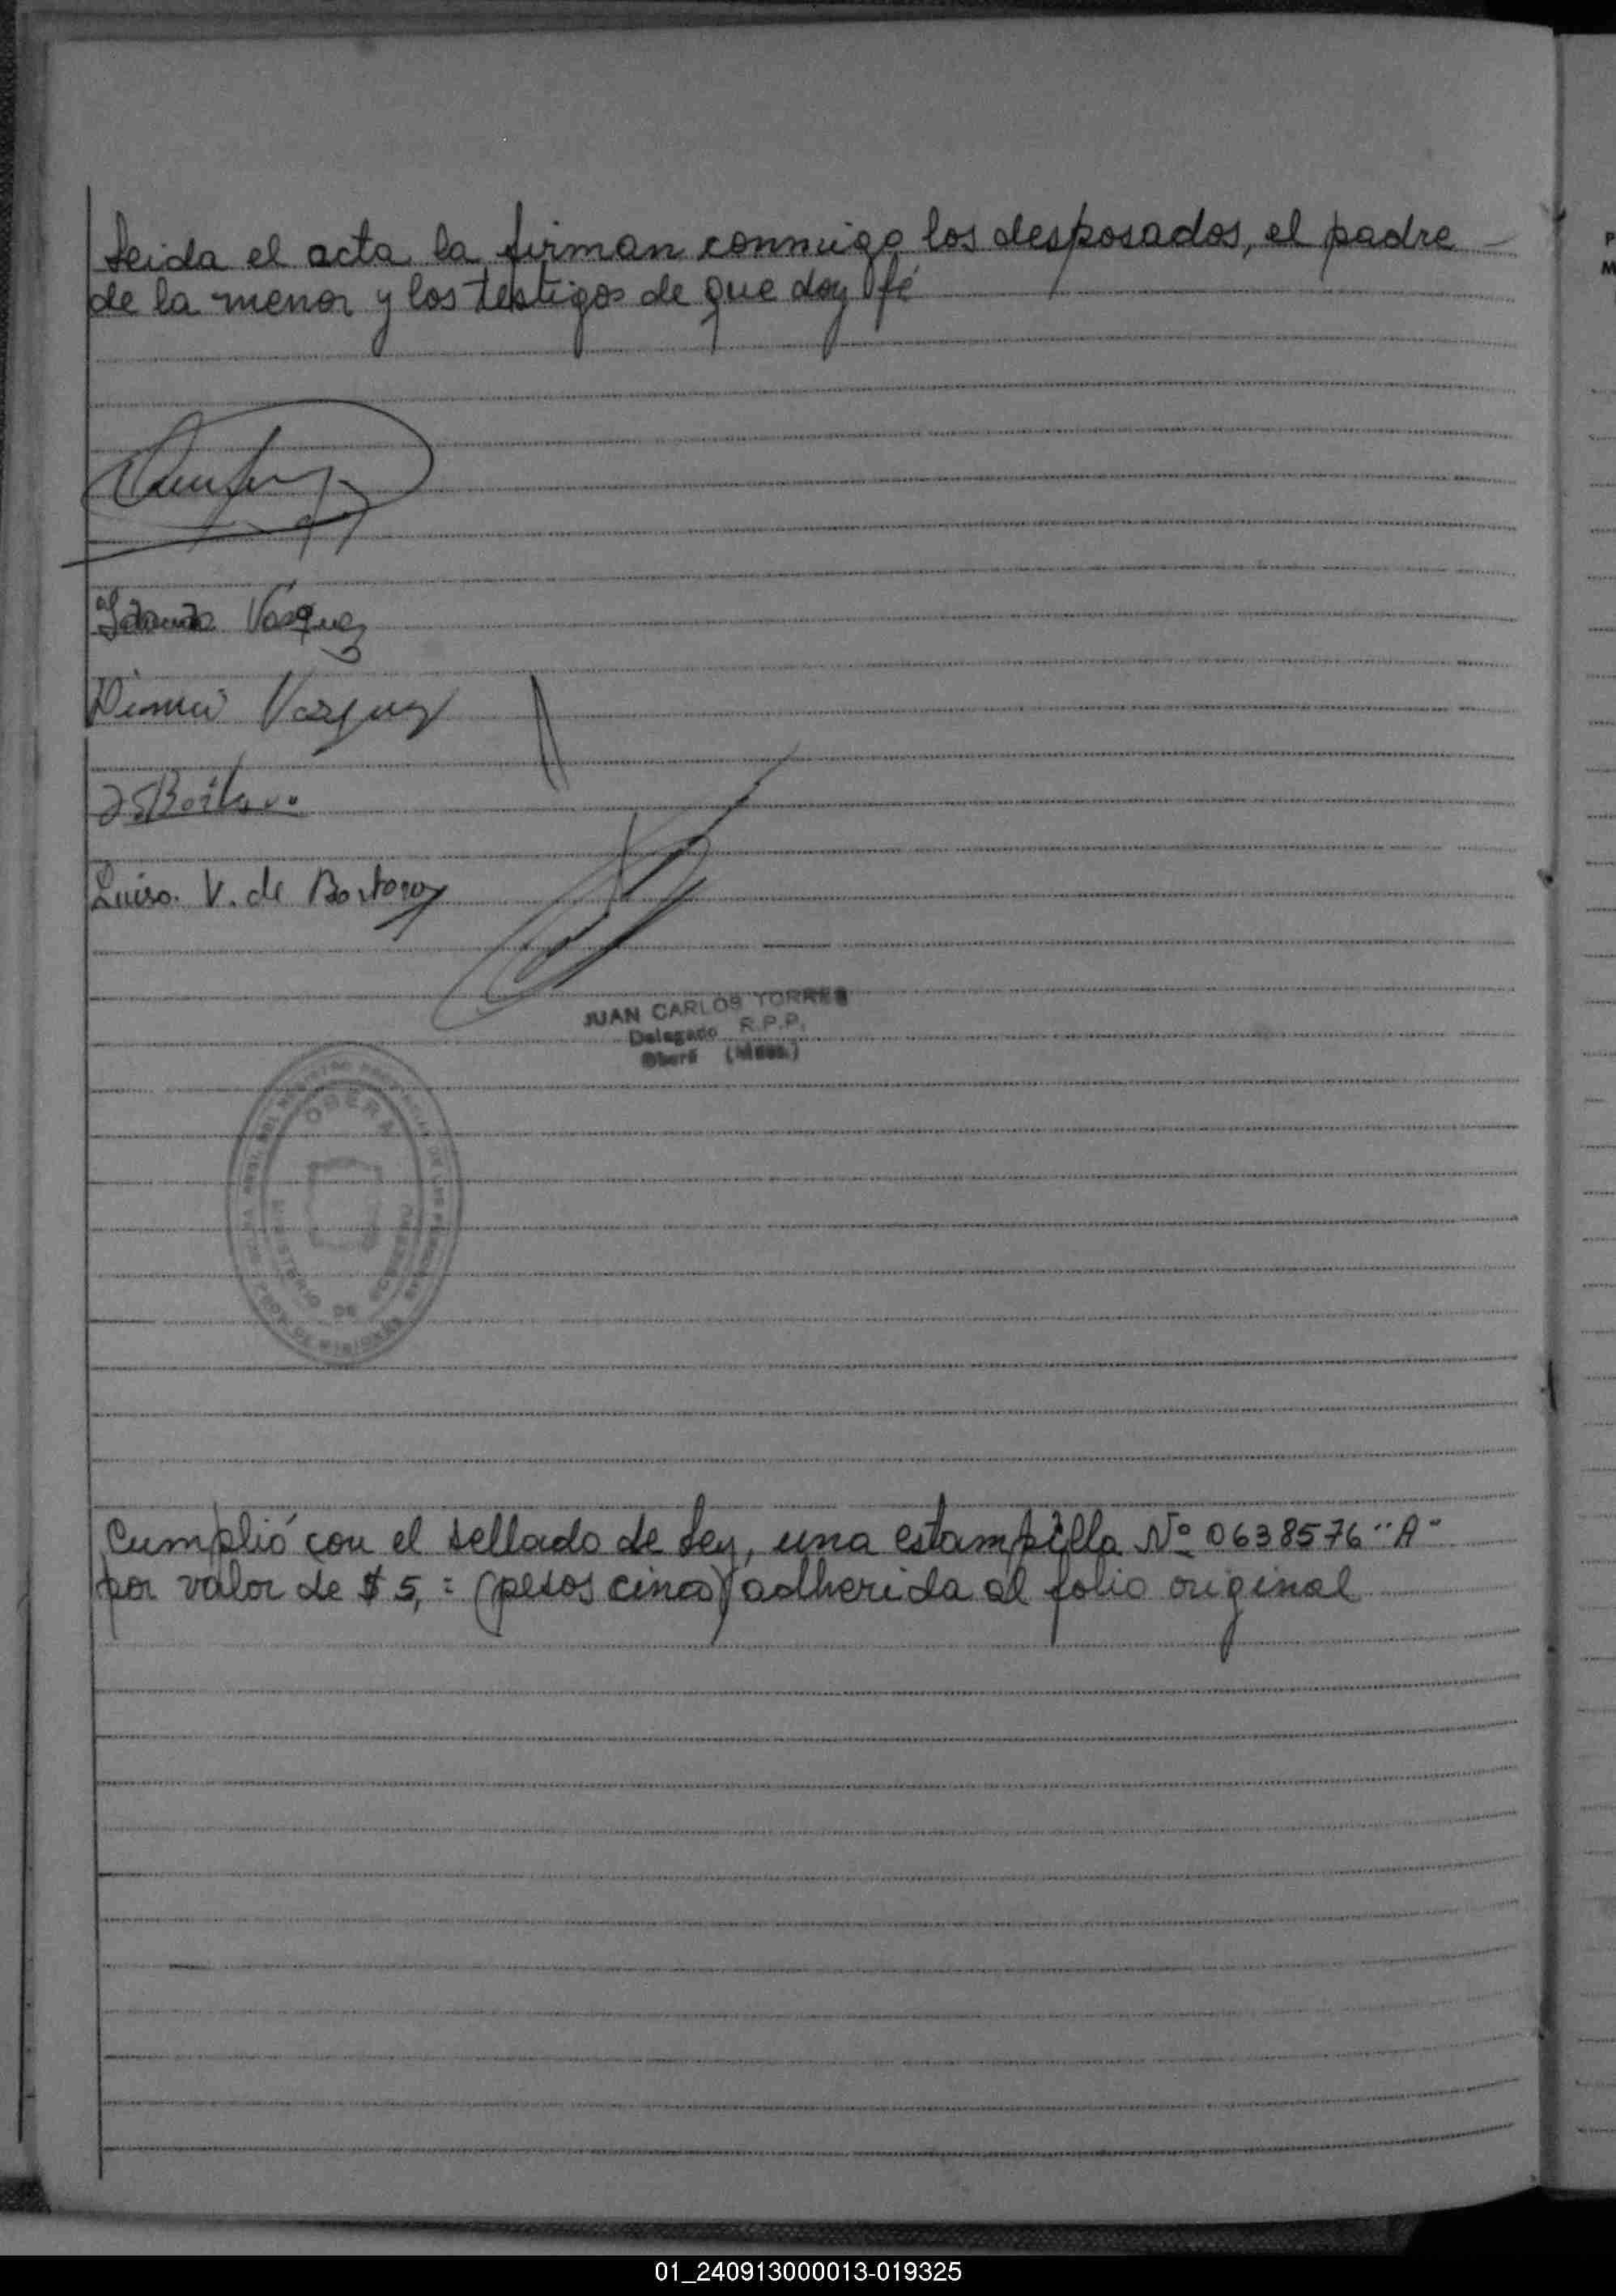 Leida el acta la firman conmigo los desposados, el padre
de la menor y los testigos de que doy fé
Vasquez
Vazquez
Luisa V. de
JUAN CARLOS TORRES
Delegado R.P.P.
Oberá (Mnes.)
OBERA
MINISTERIO DE GOBIERNO
Cumplió con el sellado de Ley, una estampilla Nº 0638576 "A"
por valor de $ 5,= (pesos cinco) adherida al folio original
01_240913000013-019325